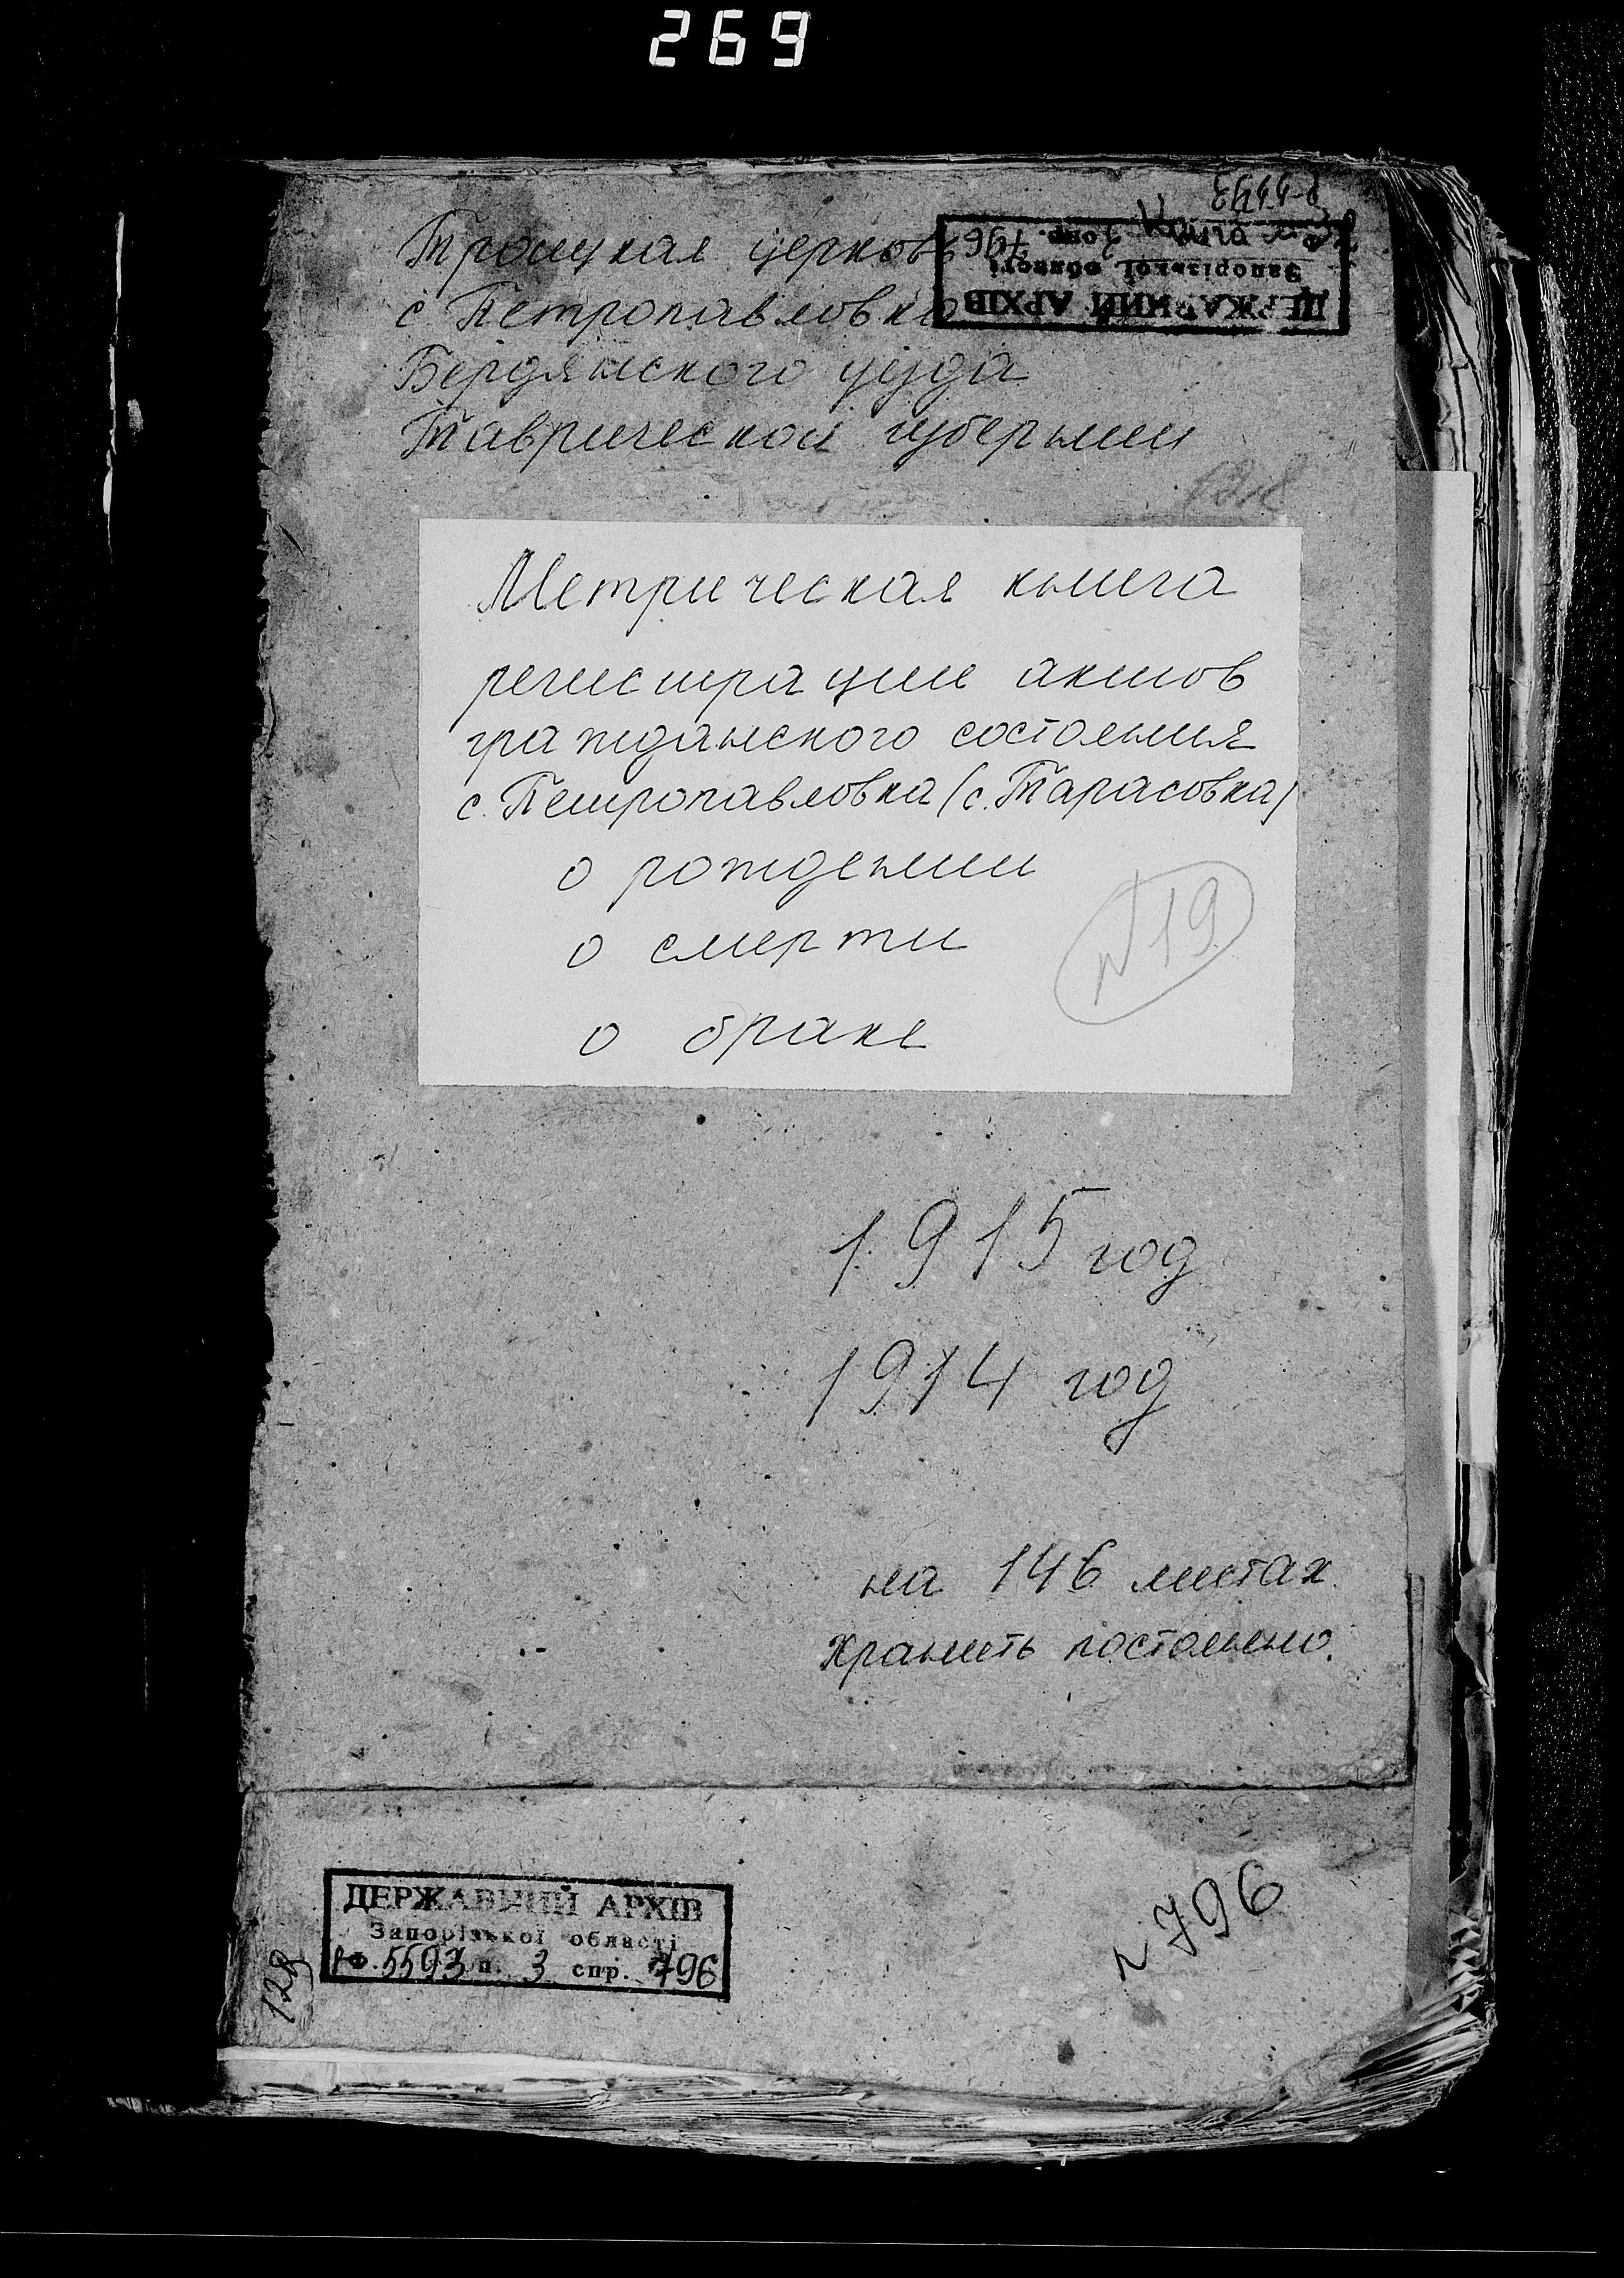 269
Р-5593
Троицкая церковь
с Петропавловка
Бердянского уезда
Таврической губернии
ДЕРЖАВНИЙ АРХІВ
Запорізької області
3 спр. 796
Метрическая книга
регистрации актов
гражданского состояния
с. Петропавловка (с. Тарасовка)
о рождении
о смерти
о браке
N 19
1915 год
1914 год
на 146 листах
Хранить постоянно.
ДЕРЖАВНИЙ АРХІВ
Запорізької області
Ф. 5593 п. 3 спр. 796
128
N 796